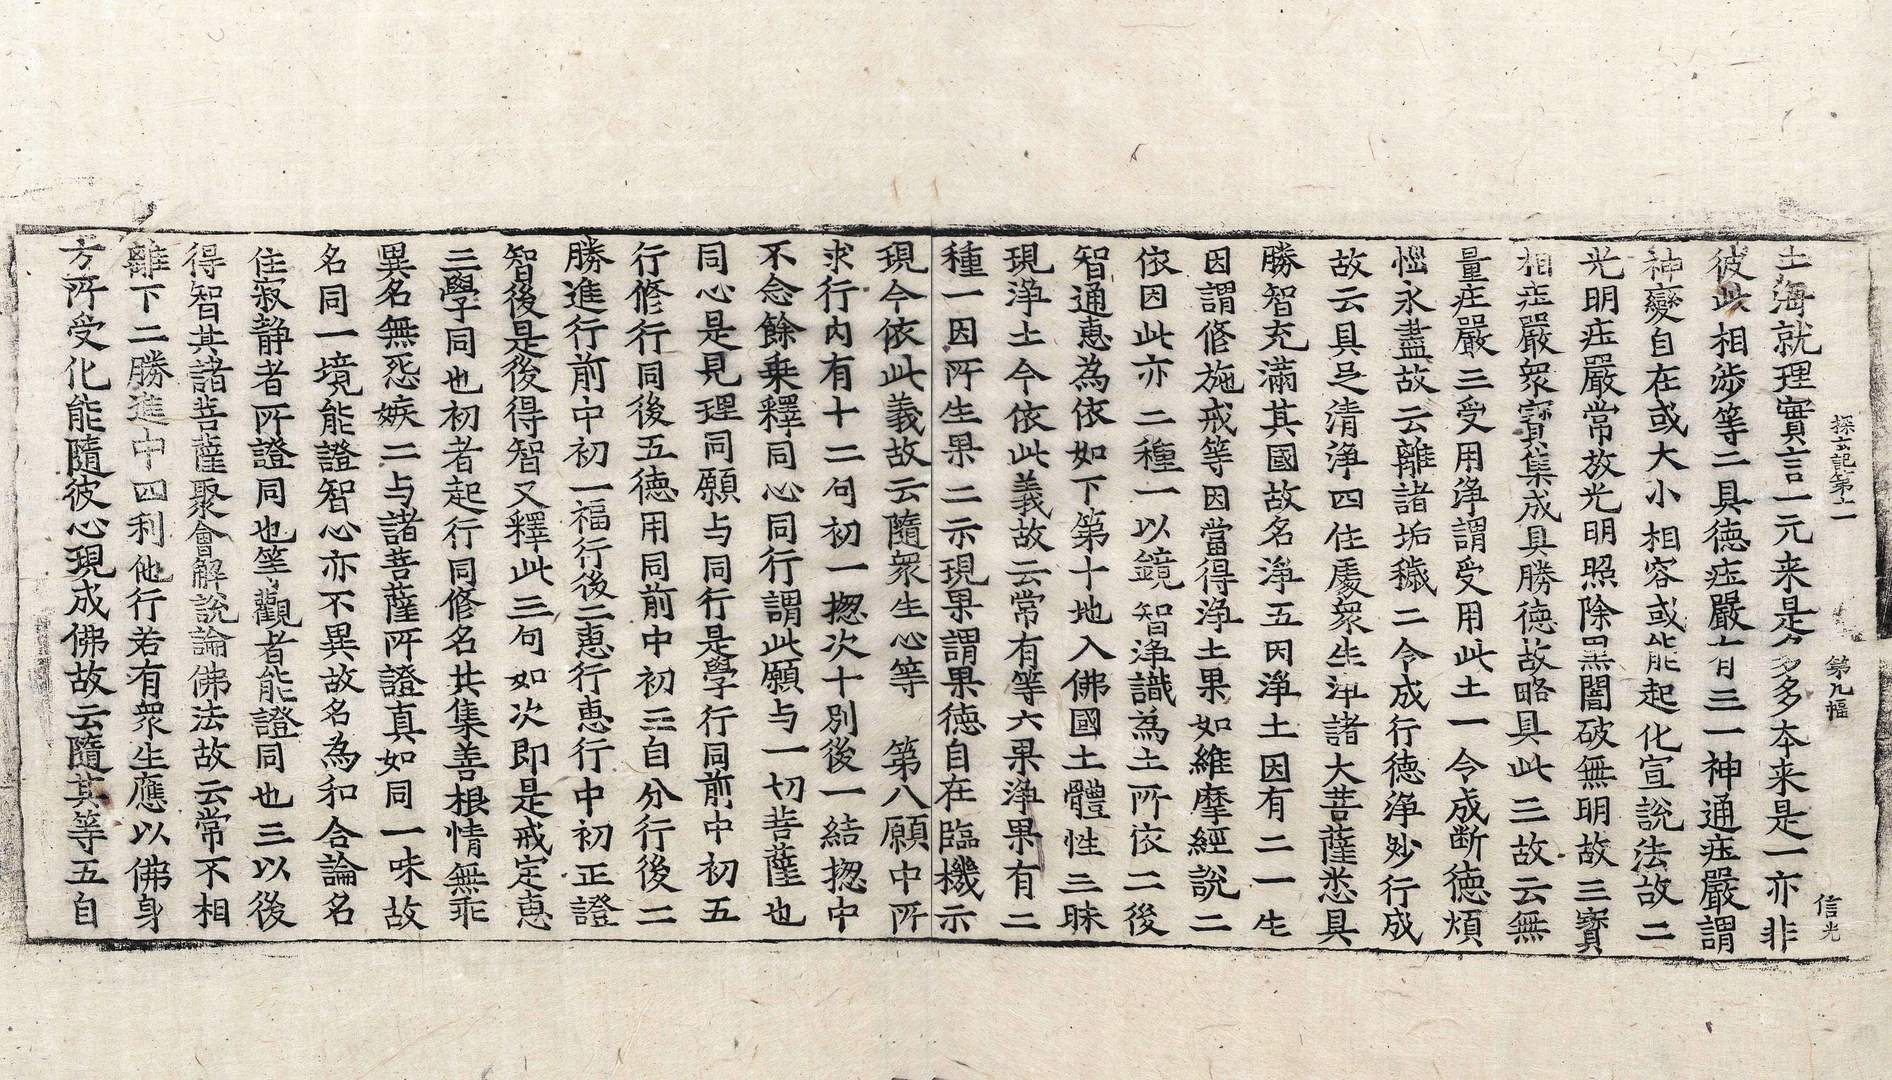 探玄記第十一 第九幅 信光
土海就理實言一元来是多多多本来是一亦非
彼此相涉等二具德庄嚴有三一神通庄嚴謂
神變自在或大小相容或能起化宣說法故二
光明庄嚴常放光明照除黑闇破無明故三寳
相庄嚴衆寳集成具勝德故略具此三故云無
量庄嚴三受用淨謂受用此土一令成断德煩
惱永盡故云離諸垢穢二令成行德淨妙行成
故云具足清淨四住處衆生淨諸大菩薩悉具
勝智充滿其國故名淨五因淨土因有二一生
因謂修施戒等因當得淨土果如維摩經說二
依因此亦二種一以鏡智淨識為土所依二後
智通惠為依如下第十地入佛國土體性三昧
現淨土今依此義故云常有等六果淨果有二
種一因所生果二示現果謂果德自在臨機示
現今依此義故云隨衆生心等 第八願中所
求行內有十二句初一揔次十別後一結揔中
不念餘乗釋同心同行謂此願与一切菩薩也
同心是見理同願与同行是學行同前中初五
行修行同後五德用同前中初三自分行後二
勝進行前中初一福行後二惠行惠行中初正證
智後是後得智又釋此三句如次即是戒定惠
三學同也初者起行同修名共集善根情無乖
異名無怨嫉二与諸菩薩所證真如同一味故
名同一境能證智心亦不異故名為和合論名
住寂静者所證同也等觀者能證同也三以後
得智其諸菩薩聚會解說論佛法故云常不相
離下二勝進中四利他行若有衆生應以佛身
方所受化能隨彼心現成佛故云隨其等五自